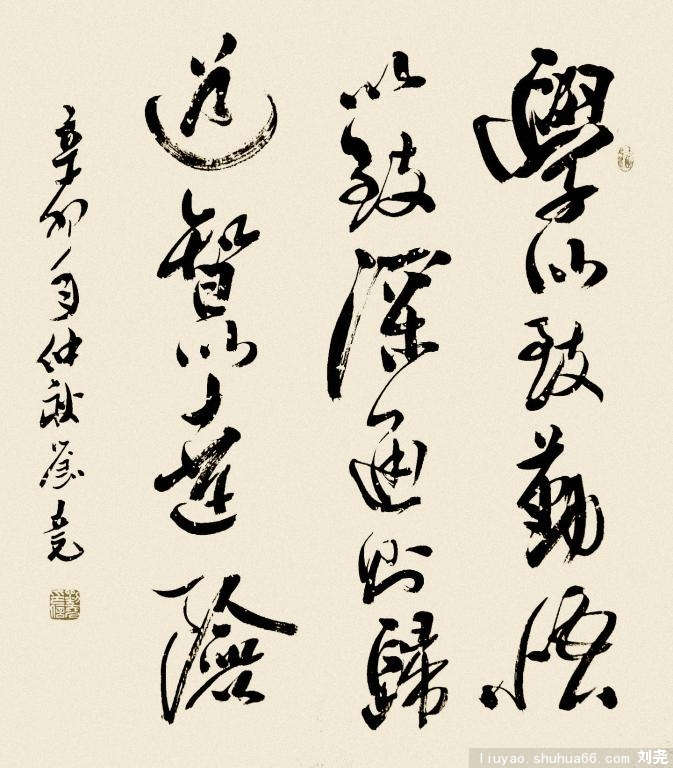 學以致勤悟
以致深通則歸
道智以達險
辛卯年仲秋劉堯
liuyao.shuhua66.com 刘尧